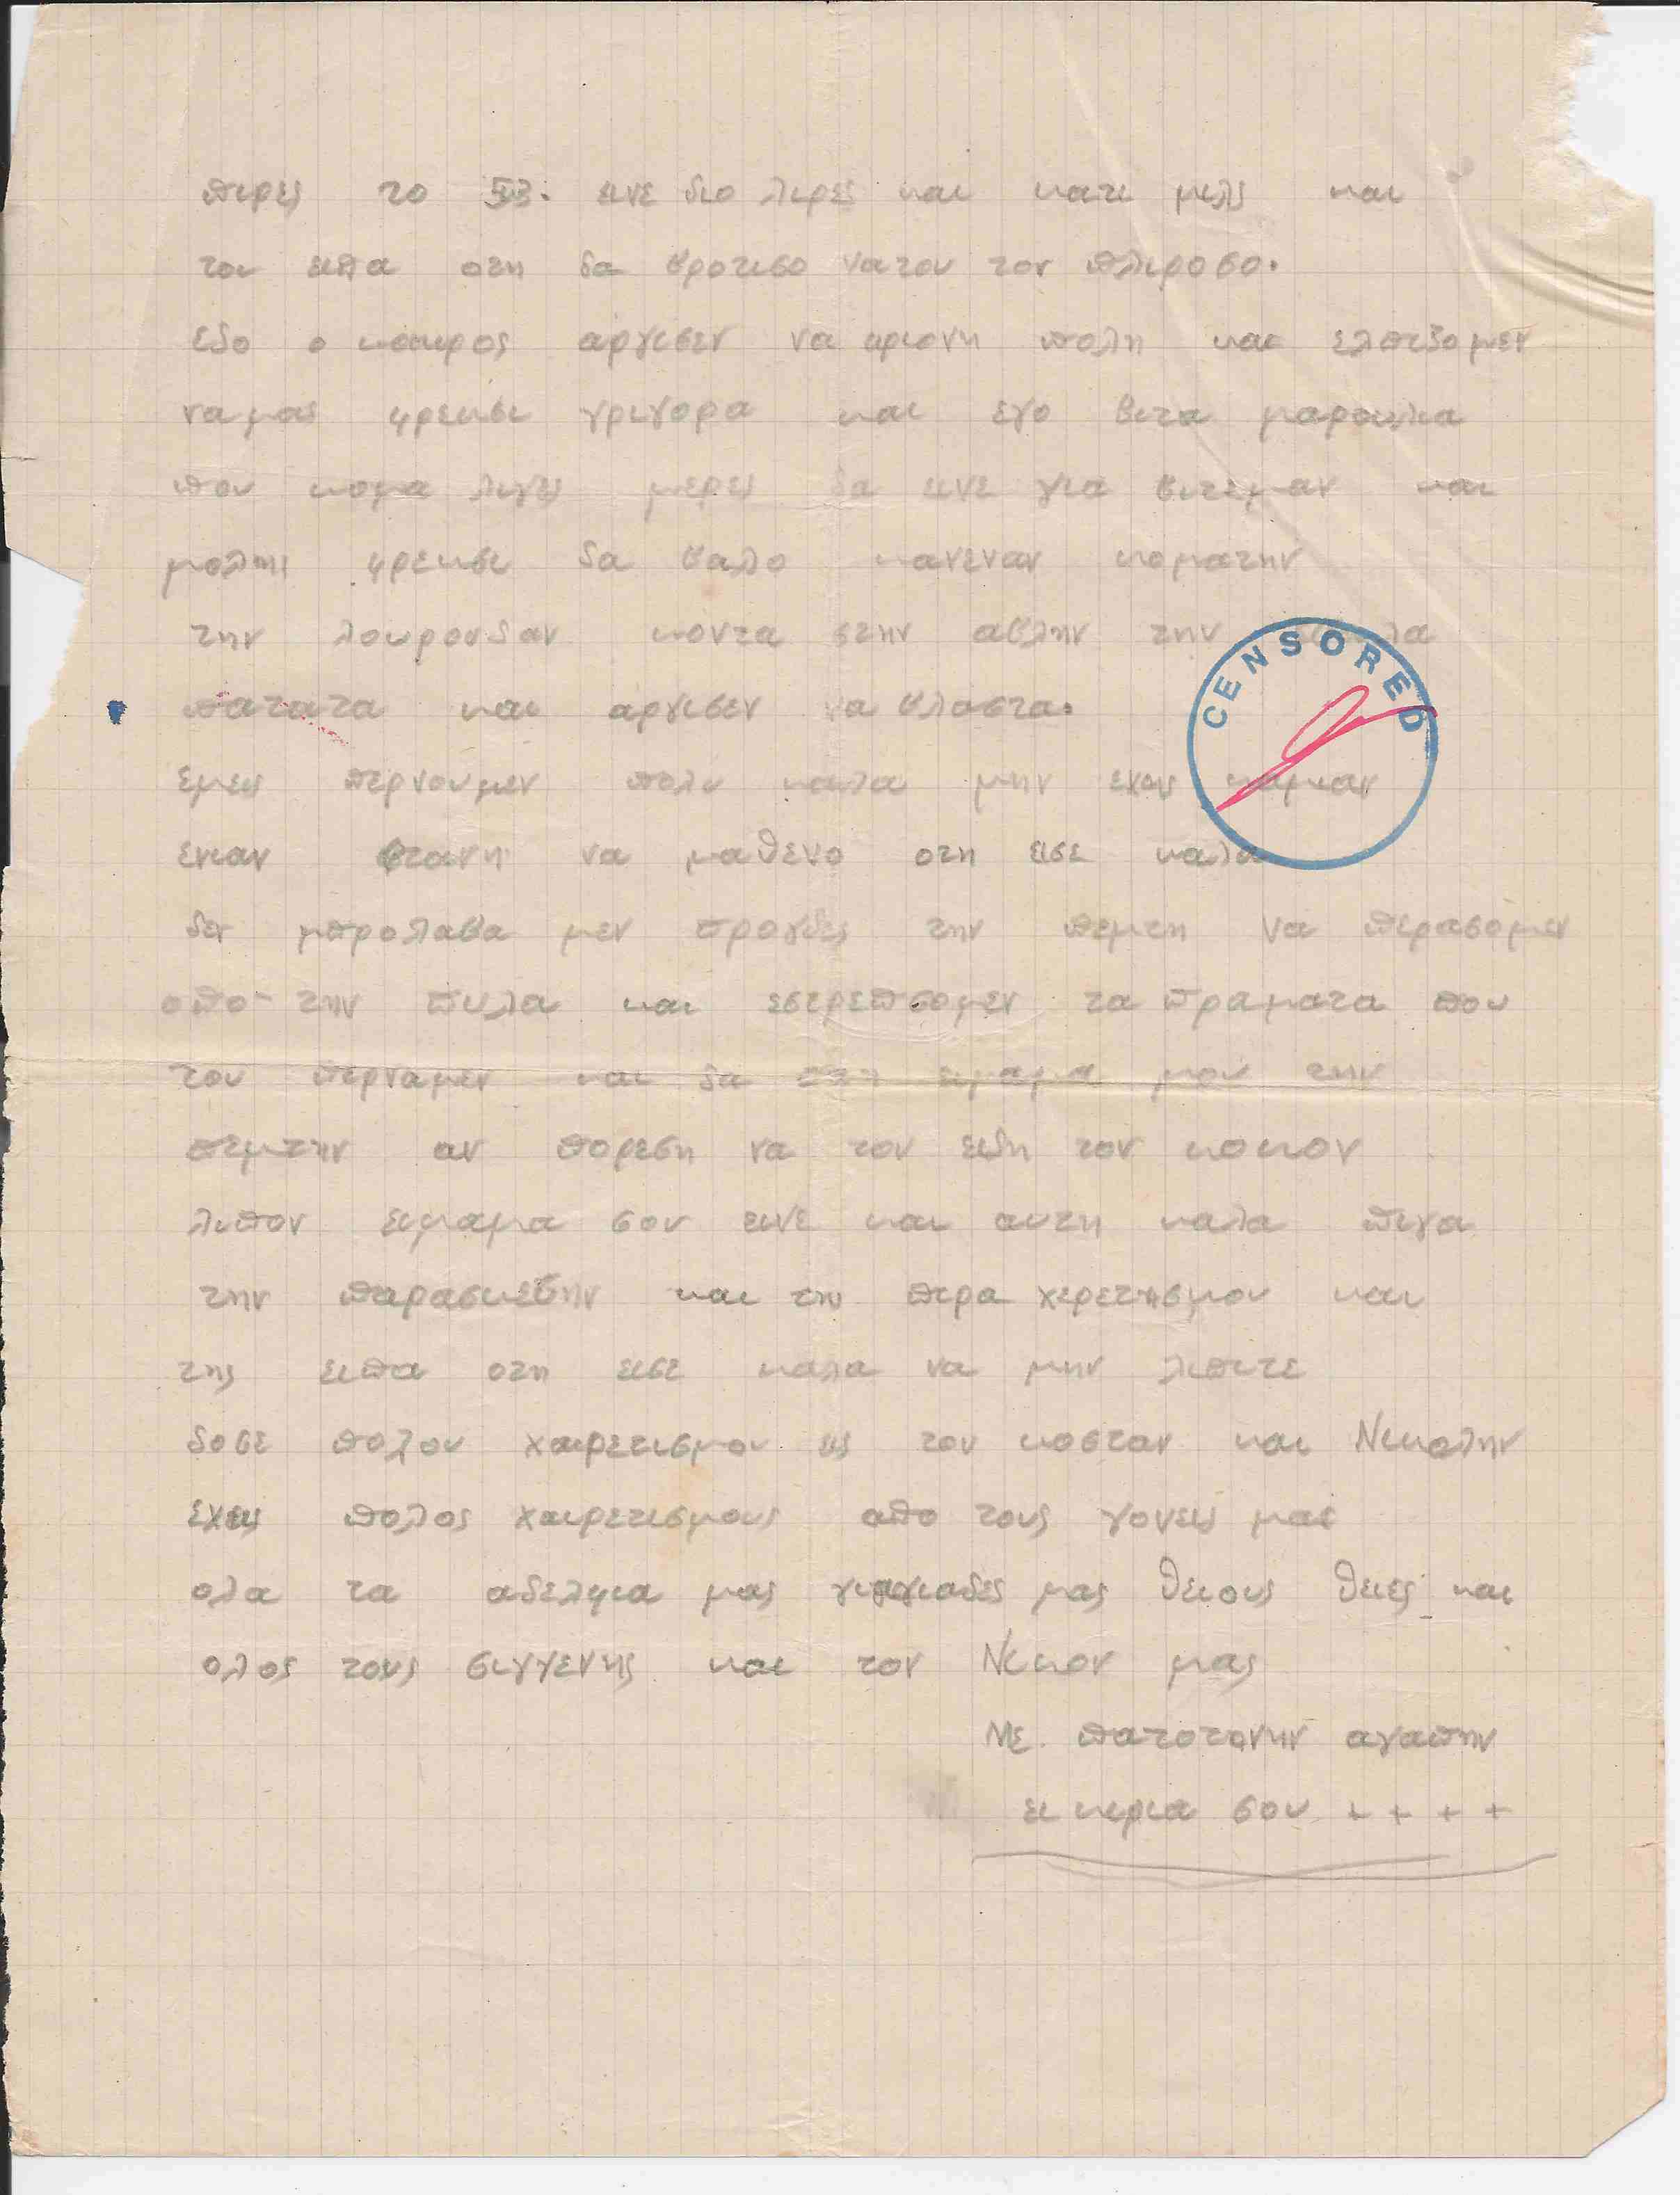 πιρες το εινε διο λιρες και κατι μιλς και
του ειπα οτη δα βροτισο νατου τον πλιροσο.
εδο ο κααιρος αργισεν να κριονη πολη και ελπιζομεν
ναμας φρεκσι γριγορα και εγο βιτα μαρουλια
που κομα λιγες μερες δα εινε για βιτεμαν και
μολης φρεκσι δα βαλο κανεναν κοματην
την λουρουδαν κοντα στην αβλην την
πατατα και αργισεν να βλαστα.
εμεις περνουμεν πολυ καλα μην εχης καμιαν
ενιαν φτανη να μαθενο οτη εισε καλα
δεν μπρολαβα μεν προχδες την πεμτη να περασομεν
απο την πυλα και εστρεπσομεν τα πραματα που
του περναμεν και δα ειμαμα μου την
πεμτην αν πορεση να τον ειδη τον κοκον
λιπον ειμαμα σου εινε και αυτη καλα πιγα
την παρασκεβην και την πιρα χερετησμου και
της ειπα οτη εισε καλα να μην λιπιτε
δοσε πολου χαιρετισμου ις τον κοσταν και Νικολην
εχεις πολος χαιρετισμους απο τους γονεις μας
ολα τα αδελφια μας γιαγιαδες μας θειους θειες και
ολος τους σιγγενης και τον Νικον μας
Με πατοτανην αγαπην
ει κιρια σου + + + +
CENSORED